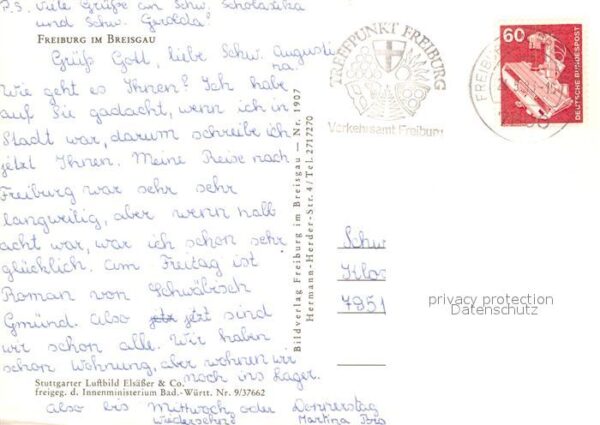 P.S. Viele Grüße an Schw. Scholastika
und Schw. Gerolda!
FREIBURG IM BREISGAU
Grüß Gott, liebe Schw. Augusti
na
Wie geht es Ihnen? Ich habe
auf Sie gadacht, wenn ich in
Stadt war, darum schreibe ich
jetzt Ihnen. Meine Reise nach
Freiburg war sehr sehr
langweilig, aber wenn halb
acht war, war ich schon sehr
glücklich. Am Freitag ist
Roman von Schwäbisch
Gmünd. Also jetzt sind
wir schon alle. Wir haben
schon Wohnung, aber wohnen wir
noch ins Lager.
Stuttgarter Luftbild Elsäßer & Co.
freigeg. d. Innenministerium Bad.-Württ. Nr. 9/37662
Also bis Mittwoch oder Donnerstag
Wiedersehend Martina
Bildverlag Freiburg im Breisgau — Nr. 1907
Hermann-Herder-Str. 4/Tel. 2717270
TREFFPUNKT FREIBURG
Verkehrsamt Freiburg
FREIBURG
60
DEUTSCHE BUNDESPOST
Schw
Klos
7951
privacy protection
Datenschutz